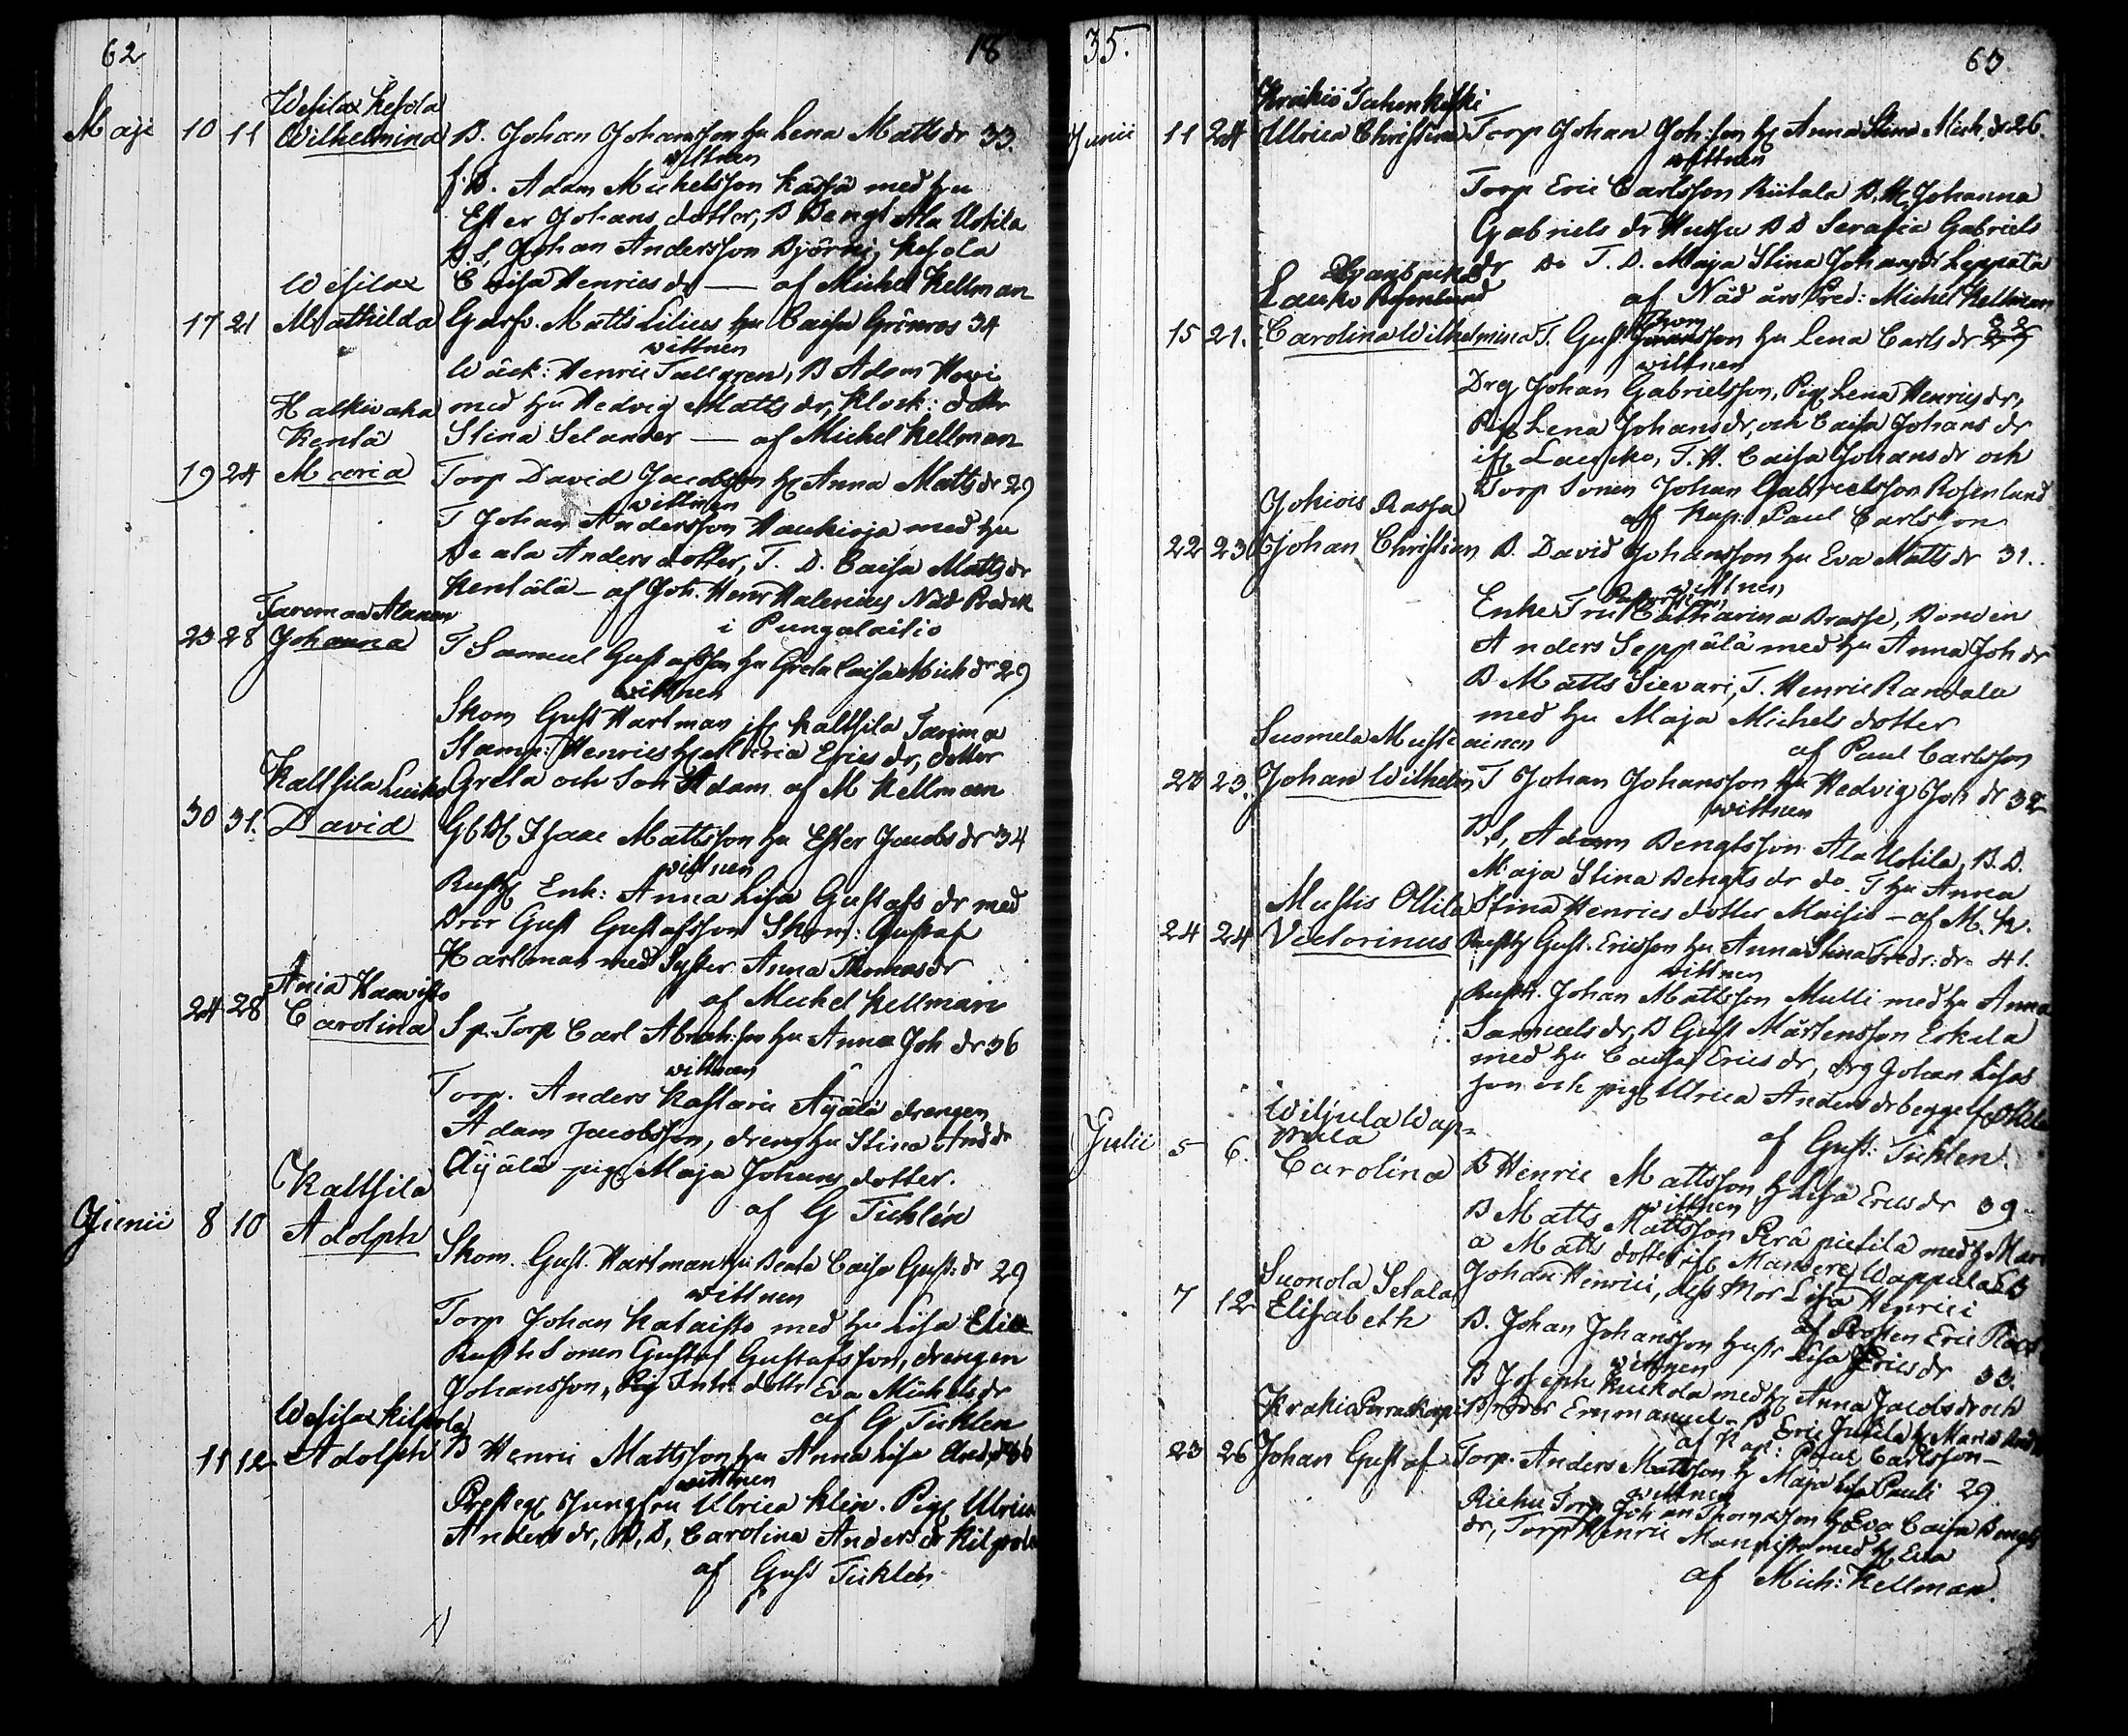 62 18
Wesilax Kesola
Maji 10 11 Wilhelmina B. Johan Johansson hu Lena Matts dr 33.
wittnen
f. B. Adam Michelsson Kassä med hu
Ester Johans dotter, B Bengt Ala Uotila
B. S. Johan Andersson Björni, Kesola
Caisa Henrics dr — af Michel Kellman
Wesilax
17 21 Mathilda Garfv. Matts Lilius hu Caisa Grönros 34
wittnen
Wäck: Henric Tallgren, B Adam Hovi
med hu Hedvig Matts dr, Klock: dottr
Stina Selander — af Michel Kellman
Halkivaha
Kentä
19 24 Maria Torp David Jacobsson hu Anna Matts dr 29
wittnen
T Johan Andersson Haukioja med hu
Beata Anders dotter, T. D. Caisa Matts dr
Kentälä — af Joh. Henr Halenius Nåd Predik
i Pungalaitio
Taremaa Alanen
23 28 Johanna T Samuel Gustafsson hu Greta Caisa Mich dr 29
wittnen
Skom Gust Hartman ifr Kaltsila Tarima
Stamp: Henrics hu Maria Erics dr, dotter
Greta och Son Adam af M Kellman
Kaltsila Luiko
30 31. David Gbbf Isaac Mattsson hu Ester Jacobs dr 34
wittnen
Rusth Enk: Anna Lisa Gustafs dr med
Brör Gust Gustafsson Skom: Gustaf
Hartman med Syster Anna Thomas dr
af Michel Kellman
Ania Haavisto
24 28 Carolina Sp. Torp Carl Abrah:son hu Anna Joh dr 36
wittnen
Torp. Anders Kastari Äyälä drengen
Adam Jacobsson, dreng hu Stina And dr
Äyälä pig Maja Johans dotter.
af G Ticklén
Kaltsila
Junii 8 10 Adolph Skom. Gust. Hartman hu Beata Caisa Gust: dr 29
wittnen
Torp Johan Kataisto med hu Lisa Elia
Rusth Sonen Gustaf Gustafsson, drengen
Johansson, Inh: dottr Eva Michels dr
af G Ticklen
Wesilax Kilpola
11 12 Adolph B Henric Mattsson hu Anna Lisa And. dr 36
wittnen
Presteg. Jungfru Ulrica Klin. Pig. Ulrica
Anders dr, B, D, Carolina Anders dr Kilpola
af Gust Ticklen
35. 63
Krakiö Tahenkiski
Junii 11 24 Ulrica Christina Torp Johan Joh:son hu Anna Stina Mich. dr 26.
wittnen
Torp Eric Carlsson Riitala B. H. Johanna
Gabriels dr Hussu B D Serafia Gabriels
dr Do T. D. Maja Stina Johans dr Leppälä
af Nåd års Pred: Michel Kellman
Lauko Rosenlund
15 21. Carolina Wilhelmina T. Gust Thomsson hu Lena Carls dr 22
wittnen
Drg Johan Gabrielsson, Pig Lena Henrics dr,
Pig Lena Johans dr, och Caisa Johans dr
ifr Laucko, T. H. Caisa Johans dr och
Torp Sonen Johan Gabrielsson Rosenlund
af Kap: Paul Carlsson
Jokiois Rassa
22 23 Johan Christian B. David Johansson hu Eva Matts dr 31.
wittnen
Enke Fru Catharina Brasse, Bonden
Anders Seppälä med hu Anna Joh dr
B Matts Sievari, T. Henric Randala
med hu Maja Michels dotter
af Paul Carlsson
Suomela Mustiainen
23 23. Johan Wilhelm T Johan Johansson hu Hedvig Joh dr 32
wittnen
B. S, Adam Bengtsson Ala Uotila, B. D.
Maja Stina Bengts dr do. T hu Anna
Stina Henrics dotter Maisio — af M. K.
Mustis Ollila
24 24 Victorinus Rusth Gust. Ericsson hu Anna Stina Fredr: dr 41.
wittnen
Rusth. Johan Mattsson Mulli med hu Anna
Samuels dr, B Gust Mårtensson Erkila
med hu Caisa Erics dr, drg Johan Lisas
son och pig Ulrica Anders dr begge ifr Ollila
af Gust: Ticklen.
Wiljula Wappula
Julii 5 6. Carolina B Henric Mattsson h Lisa Erics dr 39
wittnen
B Matts Mattsson Perä pietilä med h Mari
a Matts dotter ifr Mansere, Wappula
Johan Henrici, dess Mor Lisa Henrici
af Prosten Eric
Suonola Selala
7 12 Elisabeth B. Johan Johansson hustr Lisa Erics dr 33.
wittnen
B Joseph Kuckola med h Anna Jacobs dr och
Broder Emmanuel — B Eric Jutila h Maria
af Kap: Paul Carlsson —
Krakio
23 26 Johan Gustaf Torp. Anders Mattsson h Maja Lisa Pauli 29
wittnen
Riehu Torp Johan Thomasson h Eva Caisa Bengts
dr, Torp Henric Mannisto med h Eva
af Mich: Kellman.